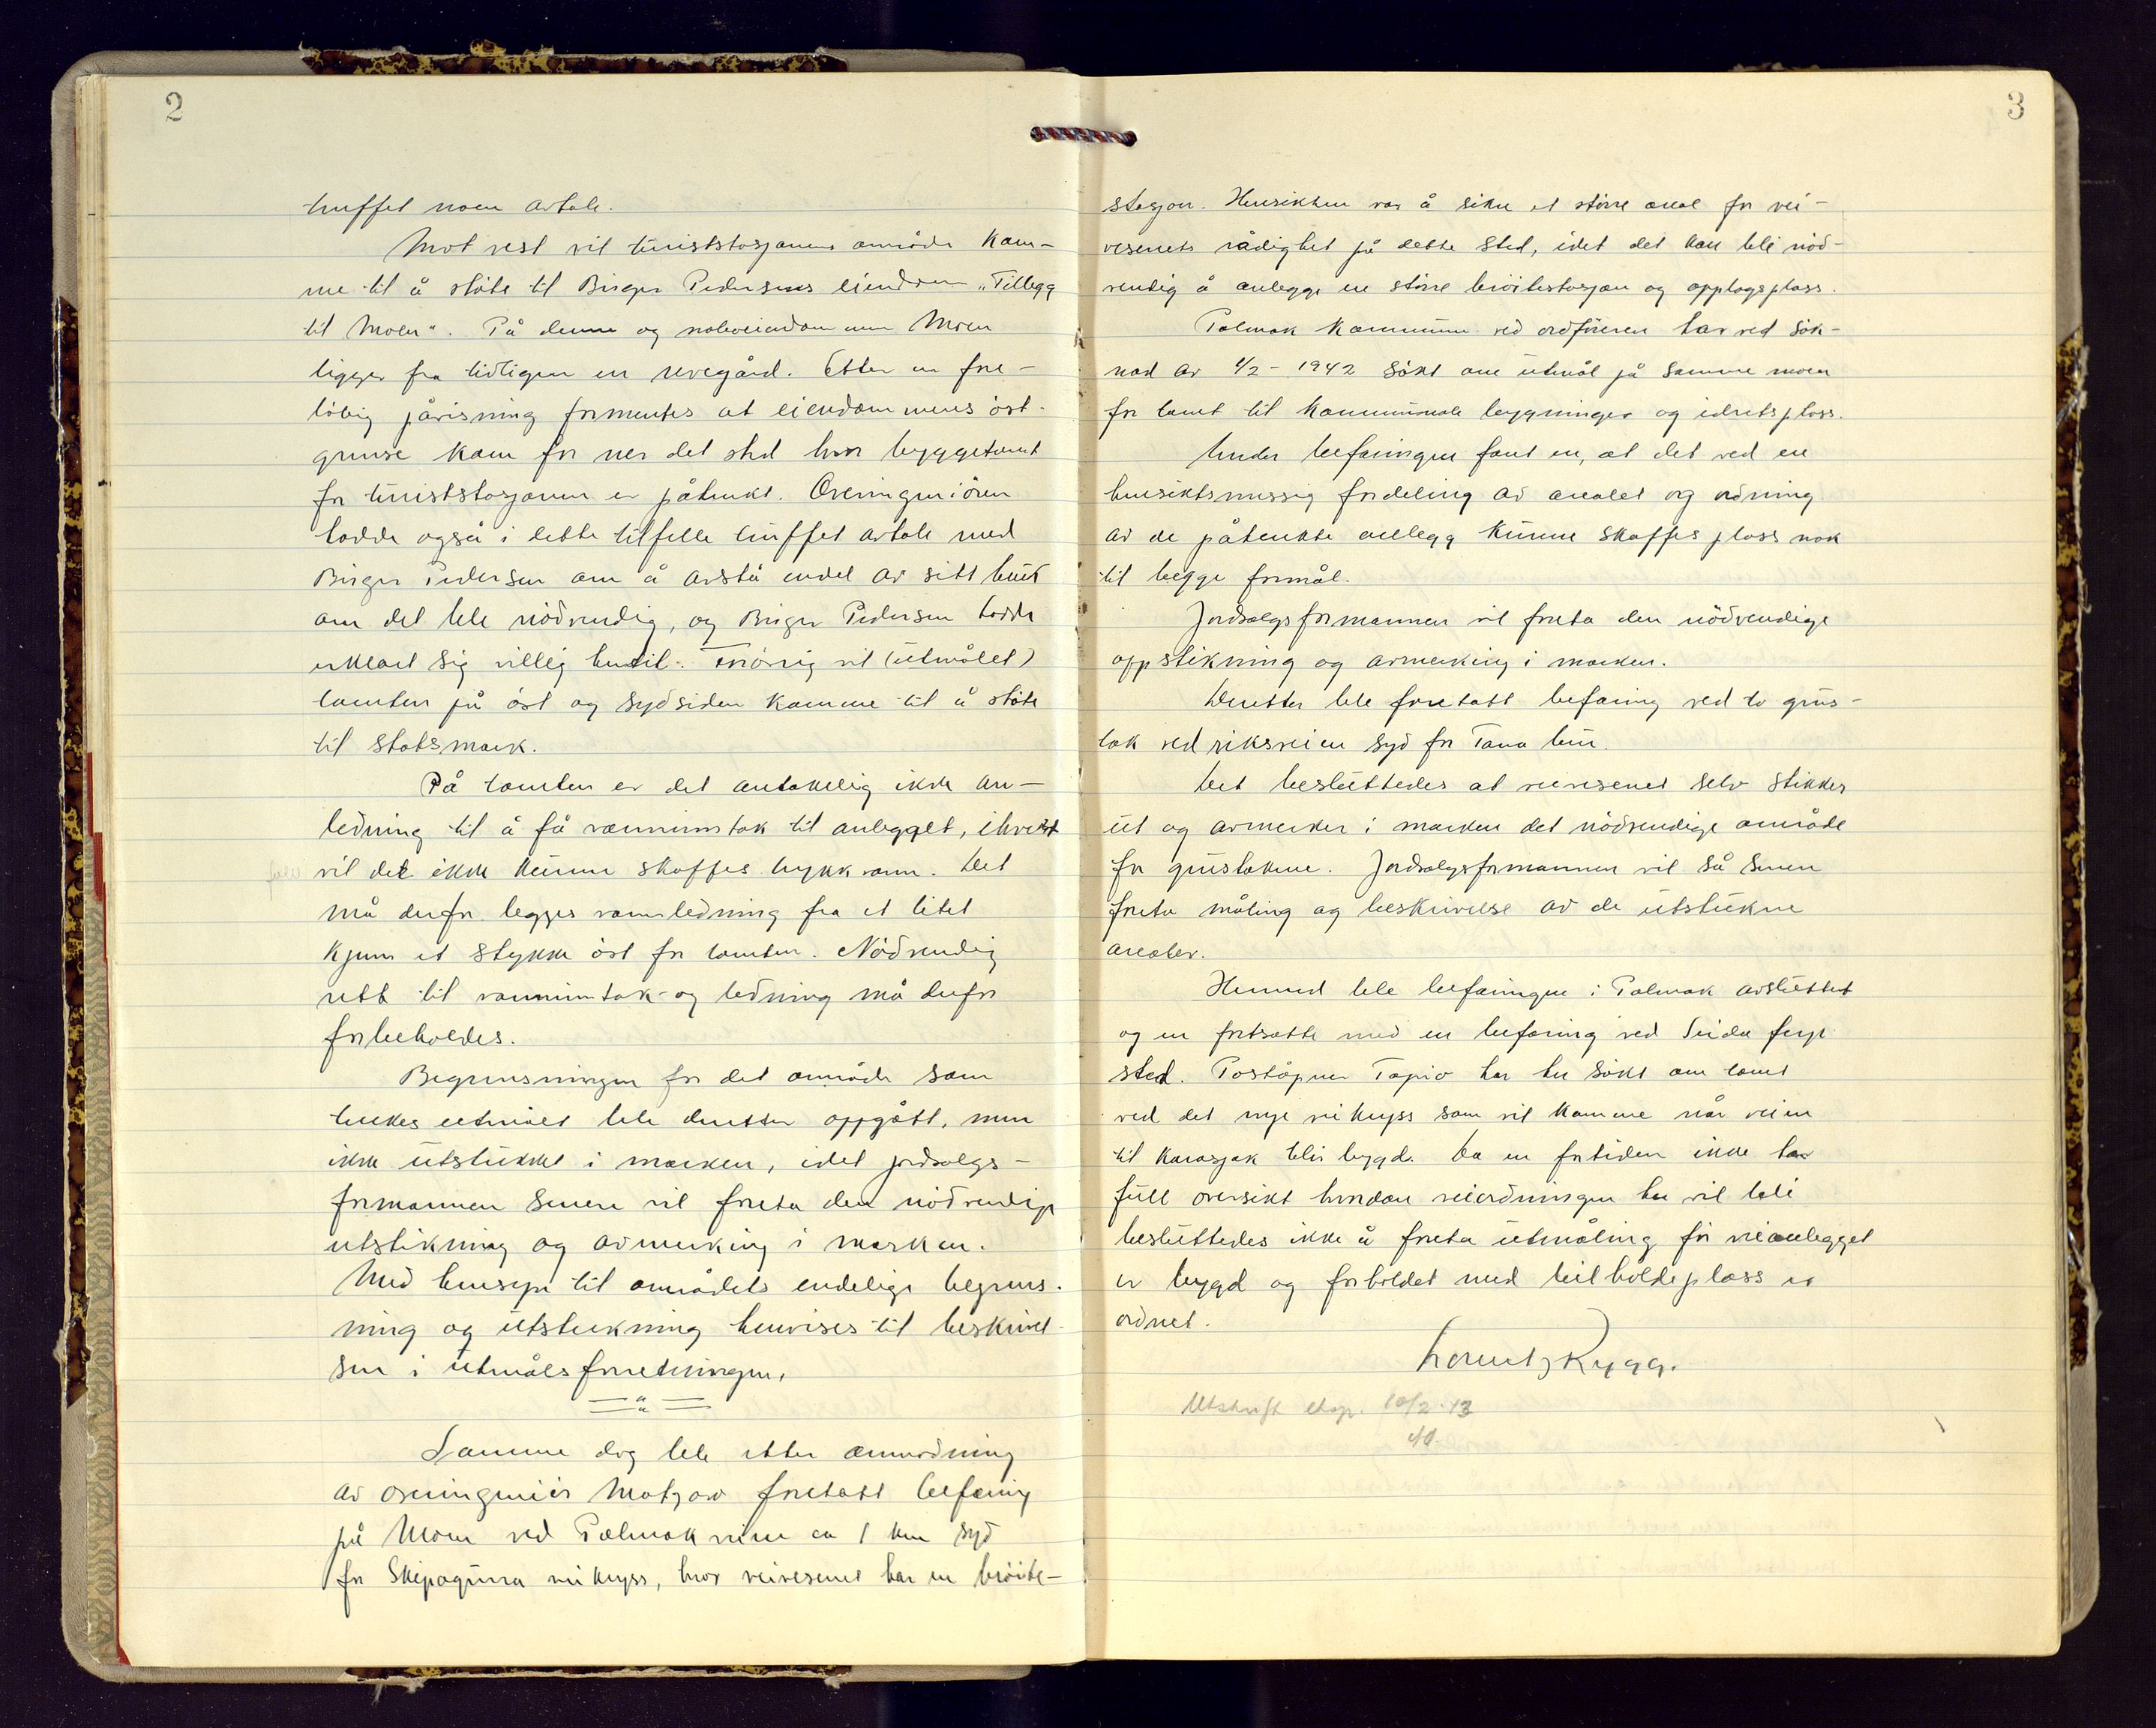 2
truffet noen avtale.
Mot vest vil turiststasjonens område kom-
me til å støte til Birger Pedersens eiendom „Tillegg
til Moen". På denne og naboeiendommen Moen
ligger fra tidligere en revegård. Etter en fore-
løbig påvisning formentes at eiendommens øst-
grense kom for nær det sted hvor byggetomt
for turiststasjonen er påtenkt. Overingeniøren
hadde også i dette tilfelle truffet avtale med
Birger Pedersen om å avstå endel av sitt bruk
om det ble nödvendig, og Birger Pedersen hadde
erklært sig villig hertil. Forövrig vil (utmålet)
tomten på öst og sydsiden komme til å støte
til statsmark.
På tomten er det antakelig ikke an-
ledning til å få vanninntak til anlegget, ihvert
fall vil det ikke kunne skaffes trykkvann. Det
må derfor legges vannledning fra et litet
kjern et stykke öst for tomten. Nödvendig
rett til vanninntak- og ledning må derfor
forbeholdes.
Begrensningen for det område som
tenkes utmålt ble deretter oppgått, men
ikke utstukket i marken, idet jordsalgs-
formannen senere vil foreta den nödvendige
utstikning og avmerking i marken.
Med hensyn til områdets endelige begrens-
ning og utstukning henvises til beskrivel-
sen i utmålsforretningen.
Samme dag ble etter anmodning
av overingeniör Matzow foretatt befaring
på Moen ved Polmakveien ca 1 km syd
for Skipagurra veikryss, hvor veivesenet har en bröite-
3
stasjon. Hensikten var å sikre et större areal for vei-
vesenets rådighet på dette sted, idet det kan bli nöd-
vendig å anlegge en större bröitestasjon og opplagsplass.
Polmak kommune ved ordföreren har ved sök-
nad av 1/2 - 1942 sökt om utmål på samme moen
for tomt til kommunale bygninger og idretsplass.
Under befaringen fant en, at det ved en
hensiktsmessig fordeling av arealet og ordning
av de påtenkte anlegg kunne skaffes plass nok
til begge formål.
Jordsalgsformannen vil foreta den nödvendige
oppstikning og avmerking i marken.
Deretter ble foretatt befaring ved to grus-
tak ved riksveien syd for Tana bru.
Det besluttedes at veivesenet selv stikker
ut og avmerker i marken det nödvendige område
for grustakene. Jordsalgsformannen vil så senere
foreta måling og beskrivelse av de utstukne
arealer.
Hermed ble befaringen i Polmak avsluttet
og en fortsatte med en befaring ved Seida ferge-
sted. Poståpner Tapio har her sökt om tomt
ved det nye veikryss som vil komme når veien
til Karasjok blir bygd. Da en fortiden ikke har
full oversikt hvordan veiordningen her vil bli
besluttedes ikke å foreta utmåling för veianlegget
er bygd og forholdet med bilholdeplass er
ordnet.
Lorentz Rygg.
Utskrift eksp. 10/2 · 43